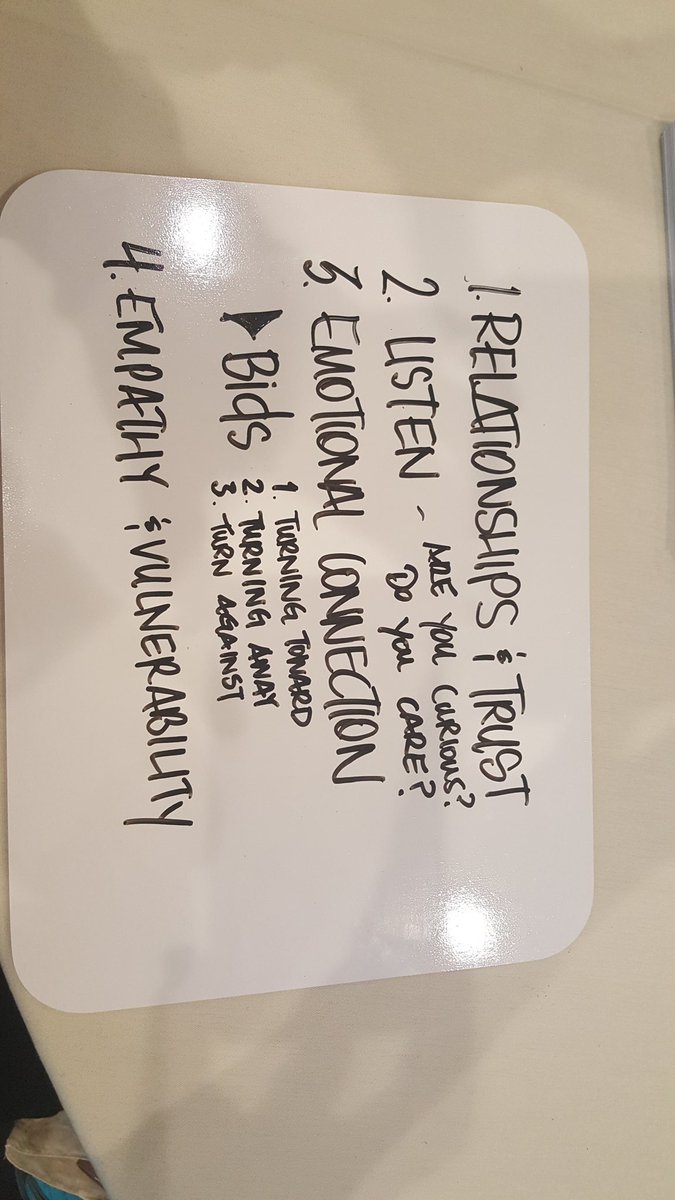 1. RELATIONSHIPS & TRUST
2. LISTEN - ARE YOU CURIOUS?
DO YOU CARE?
3. EMOTIONAL CONNECTION
▶ Bids 1. TURNING TOWARD
2. TURNING AWAY
3. TURN AGAINST
4. EMPATHY & VULNERABILITY